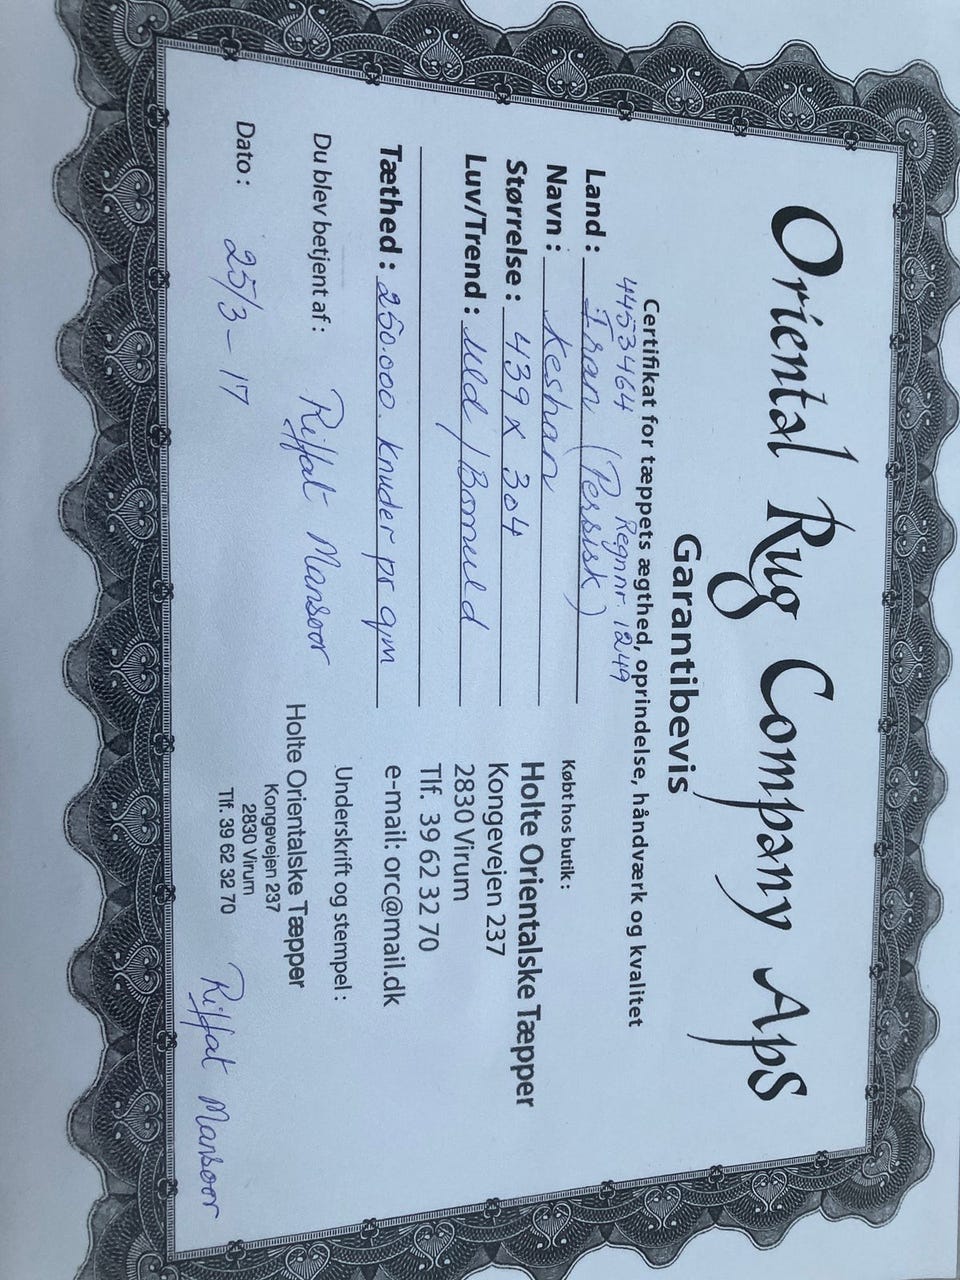 Oriental Rug Company ApS
Garantibevis
Certifikat for tæppets ægthed, oprindelse, håndværk og kvalitet
4453464 Regnnr. 1249
Land : Iran (Persisk)
Navn : Keshan
Størrelse : 439 x 304
Luv/Trend : Uld / Bomuld
Tæthed : 250.000 knuder pr qm
Du blev betjent af : Riffat Mansoor
Dato : 25/3 - 17
Købt hos butik :
Holte Orientalske Tæpper
Kongevejen 237
2830 Virum
Tlf. 39 62 32 70
e-mail: orc@mail.dk
Underskrift og stempel :
Holte Orientalske Tæpper
Kongevejen 237
2830 Virum
Tlf. 39 62 32 70
Riffat Mansoor